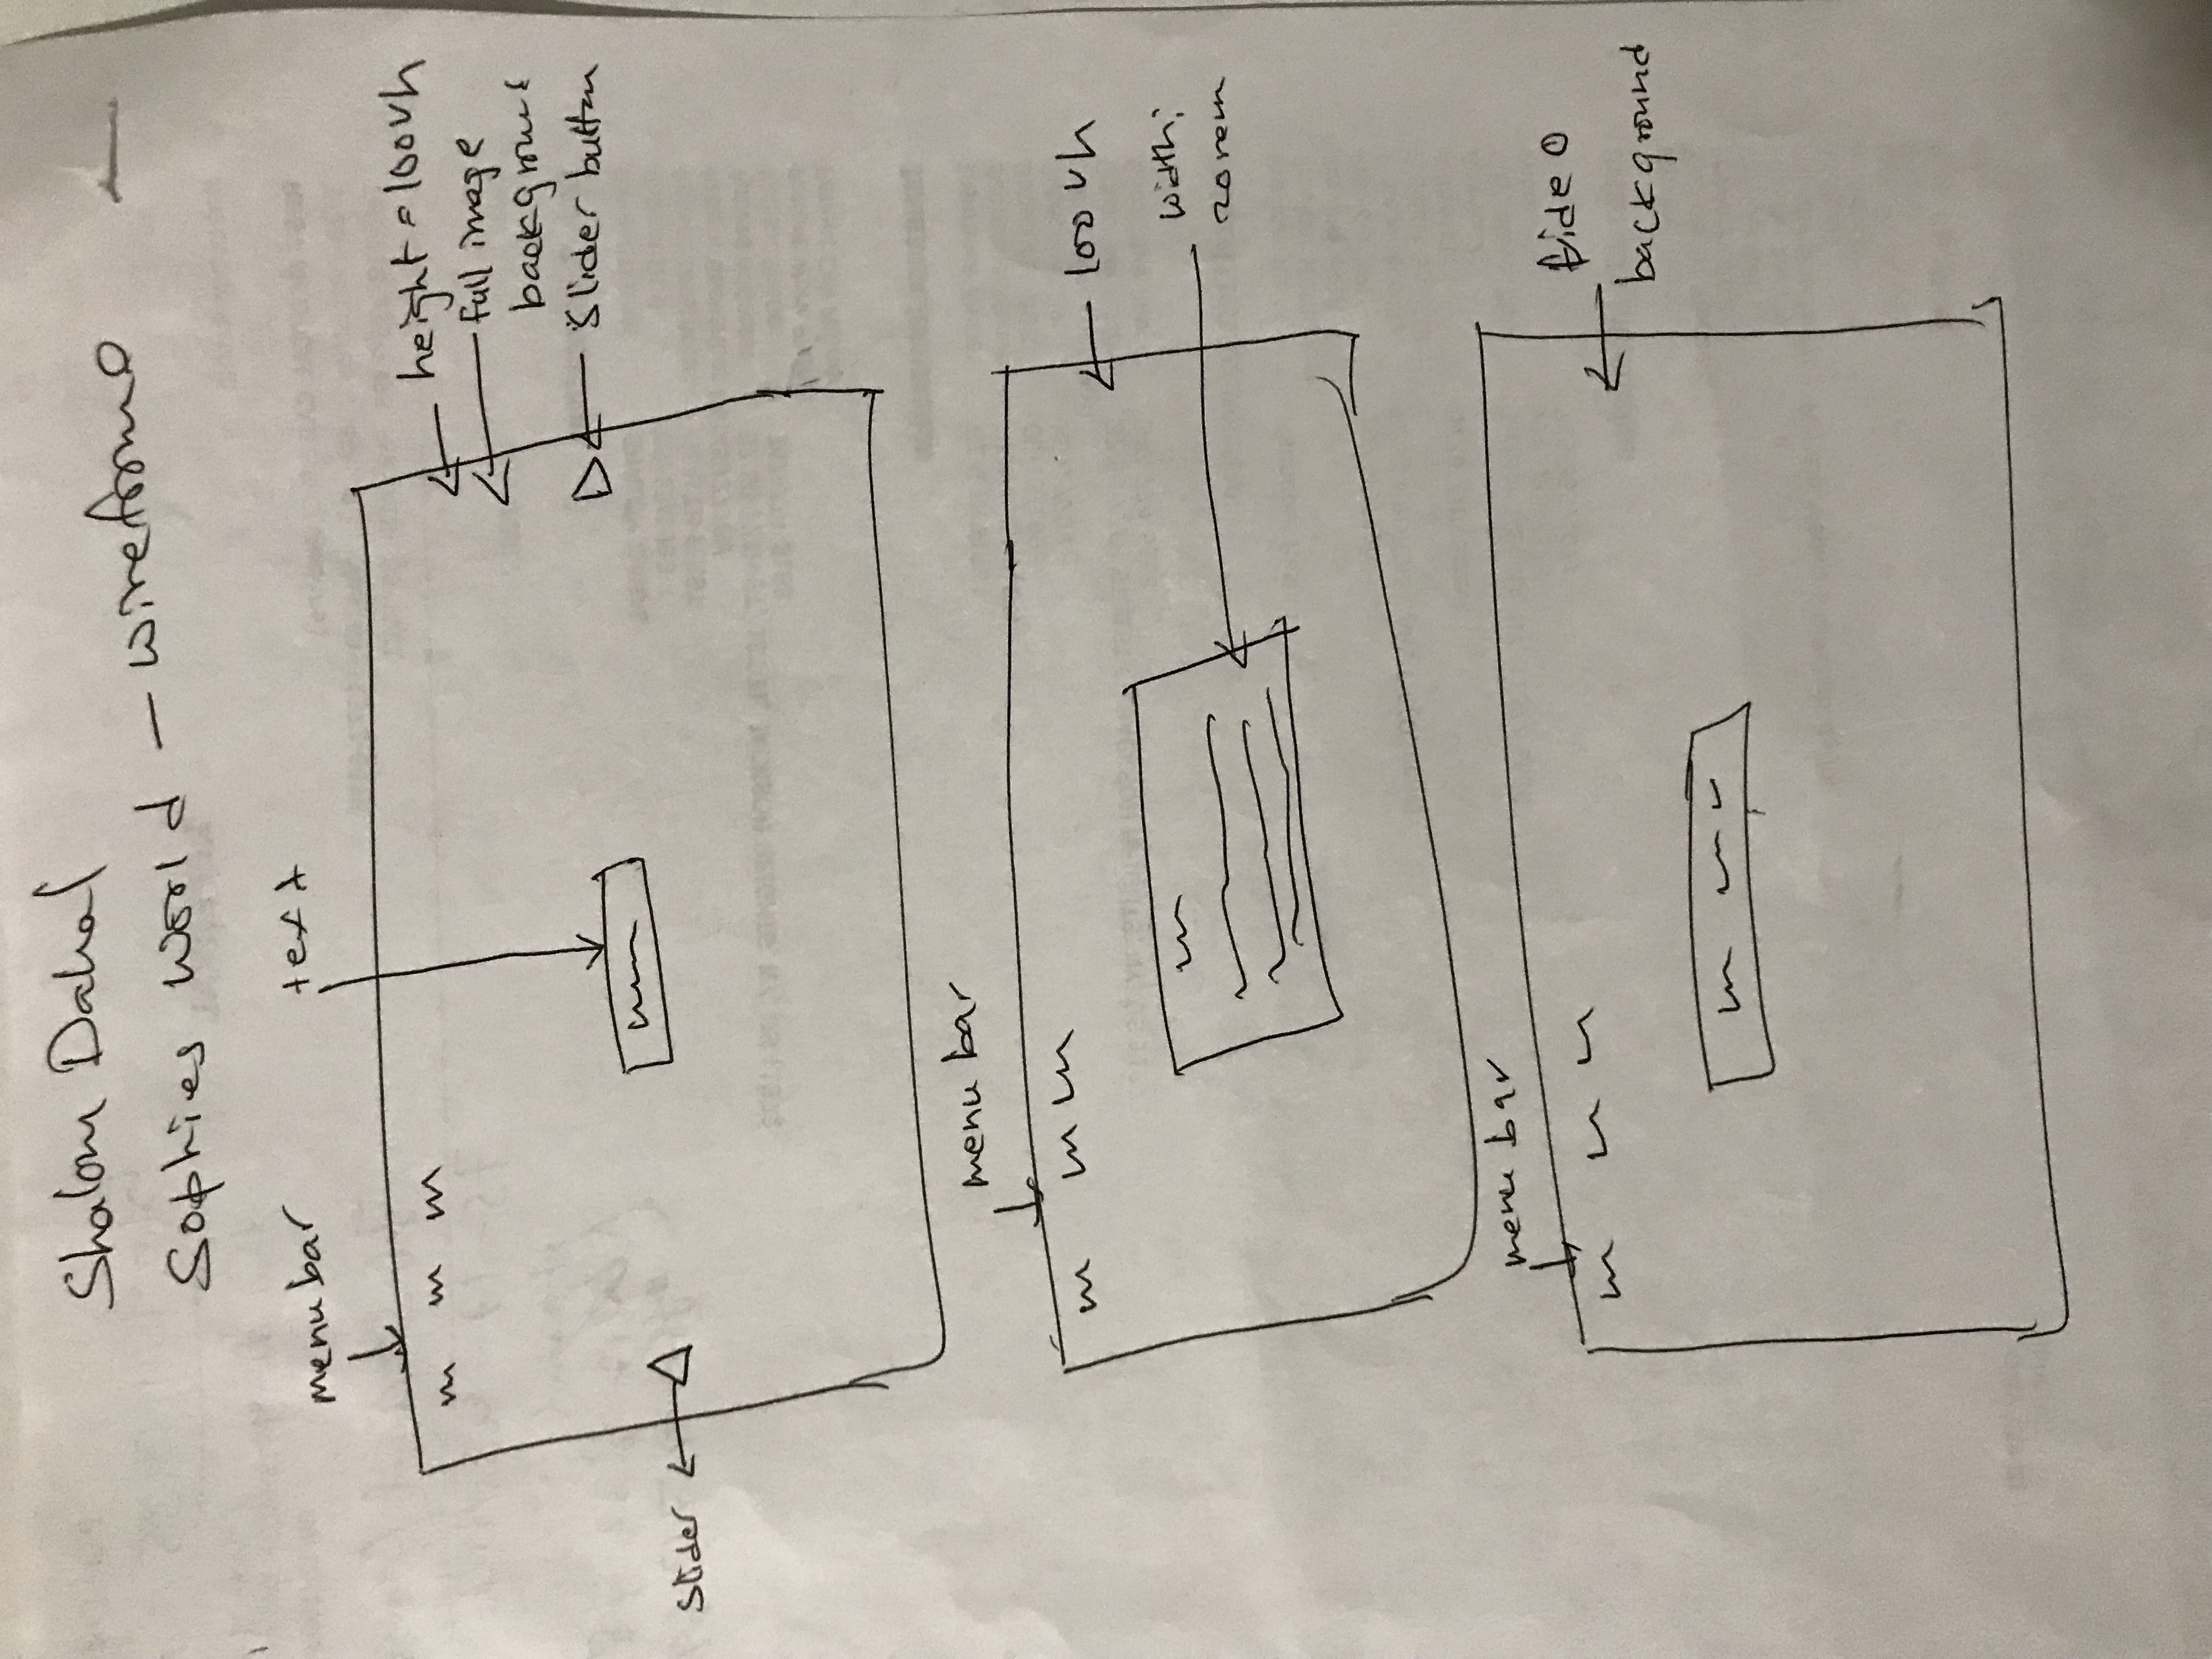 Shalom Dahal
Sophies World - wireframe
menu bar
text
height = 100vh
full image
background
slider button
slider
menu bar
100vh
width:
20rem
menu bar
video
background